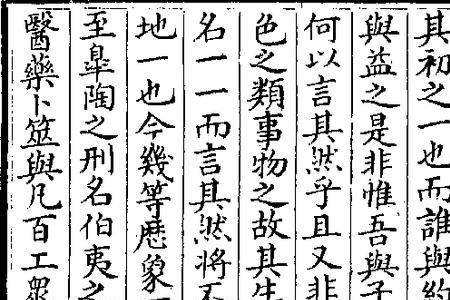 其初之一也而誰與約
與益之是非惟吾與子
何以言其然乎且又非
色之類事物之故其生
名一一而言其然將不
地一也今幾等歴象一
至皐陶之刑名伯夷之
醫藥卜筮與凡百工眾